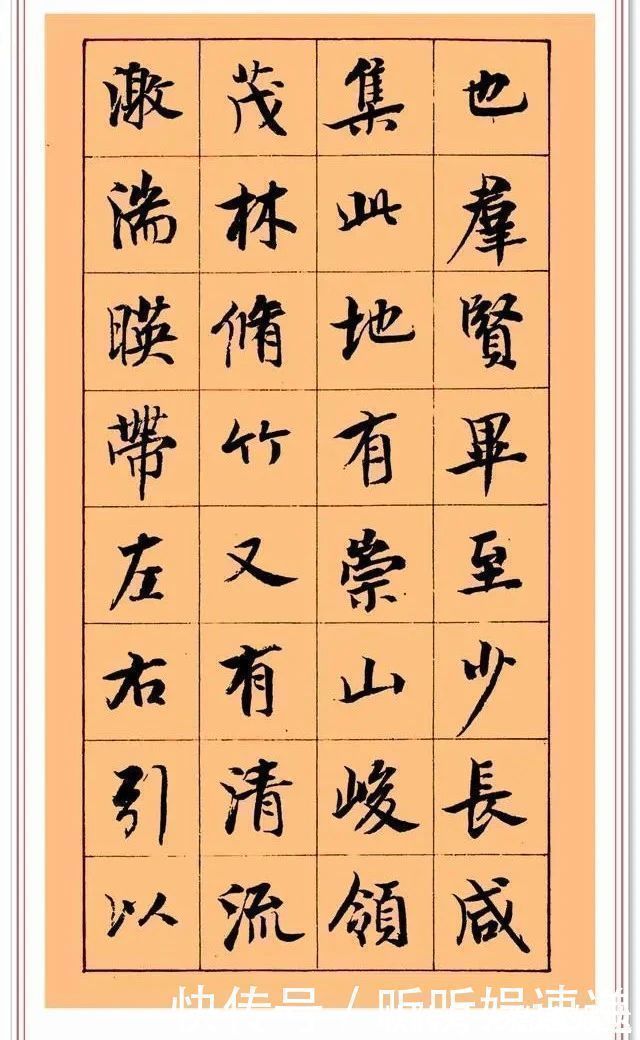 也羣賢畢至少長咸
集此地有崇山峻領
茂林脩竹又有清流
激湍暎帶左右引以
快传号／听听娱速递